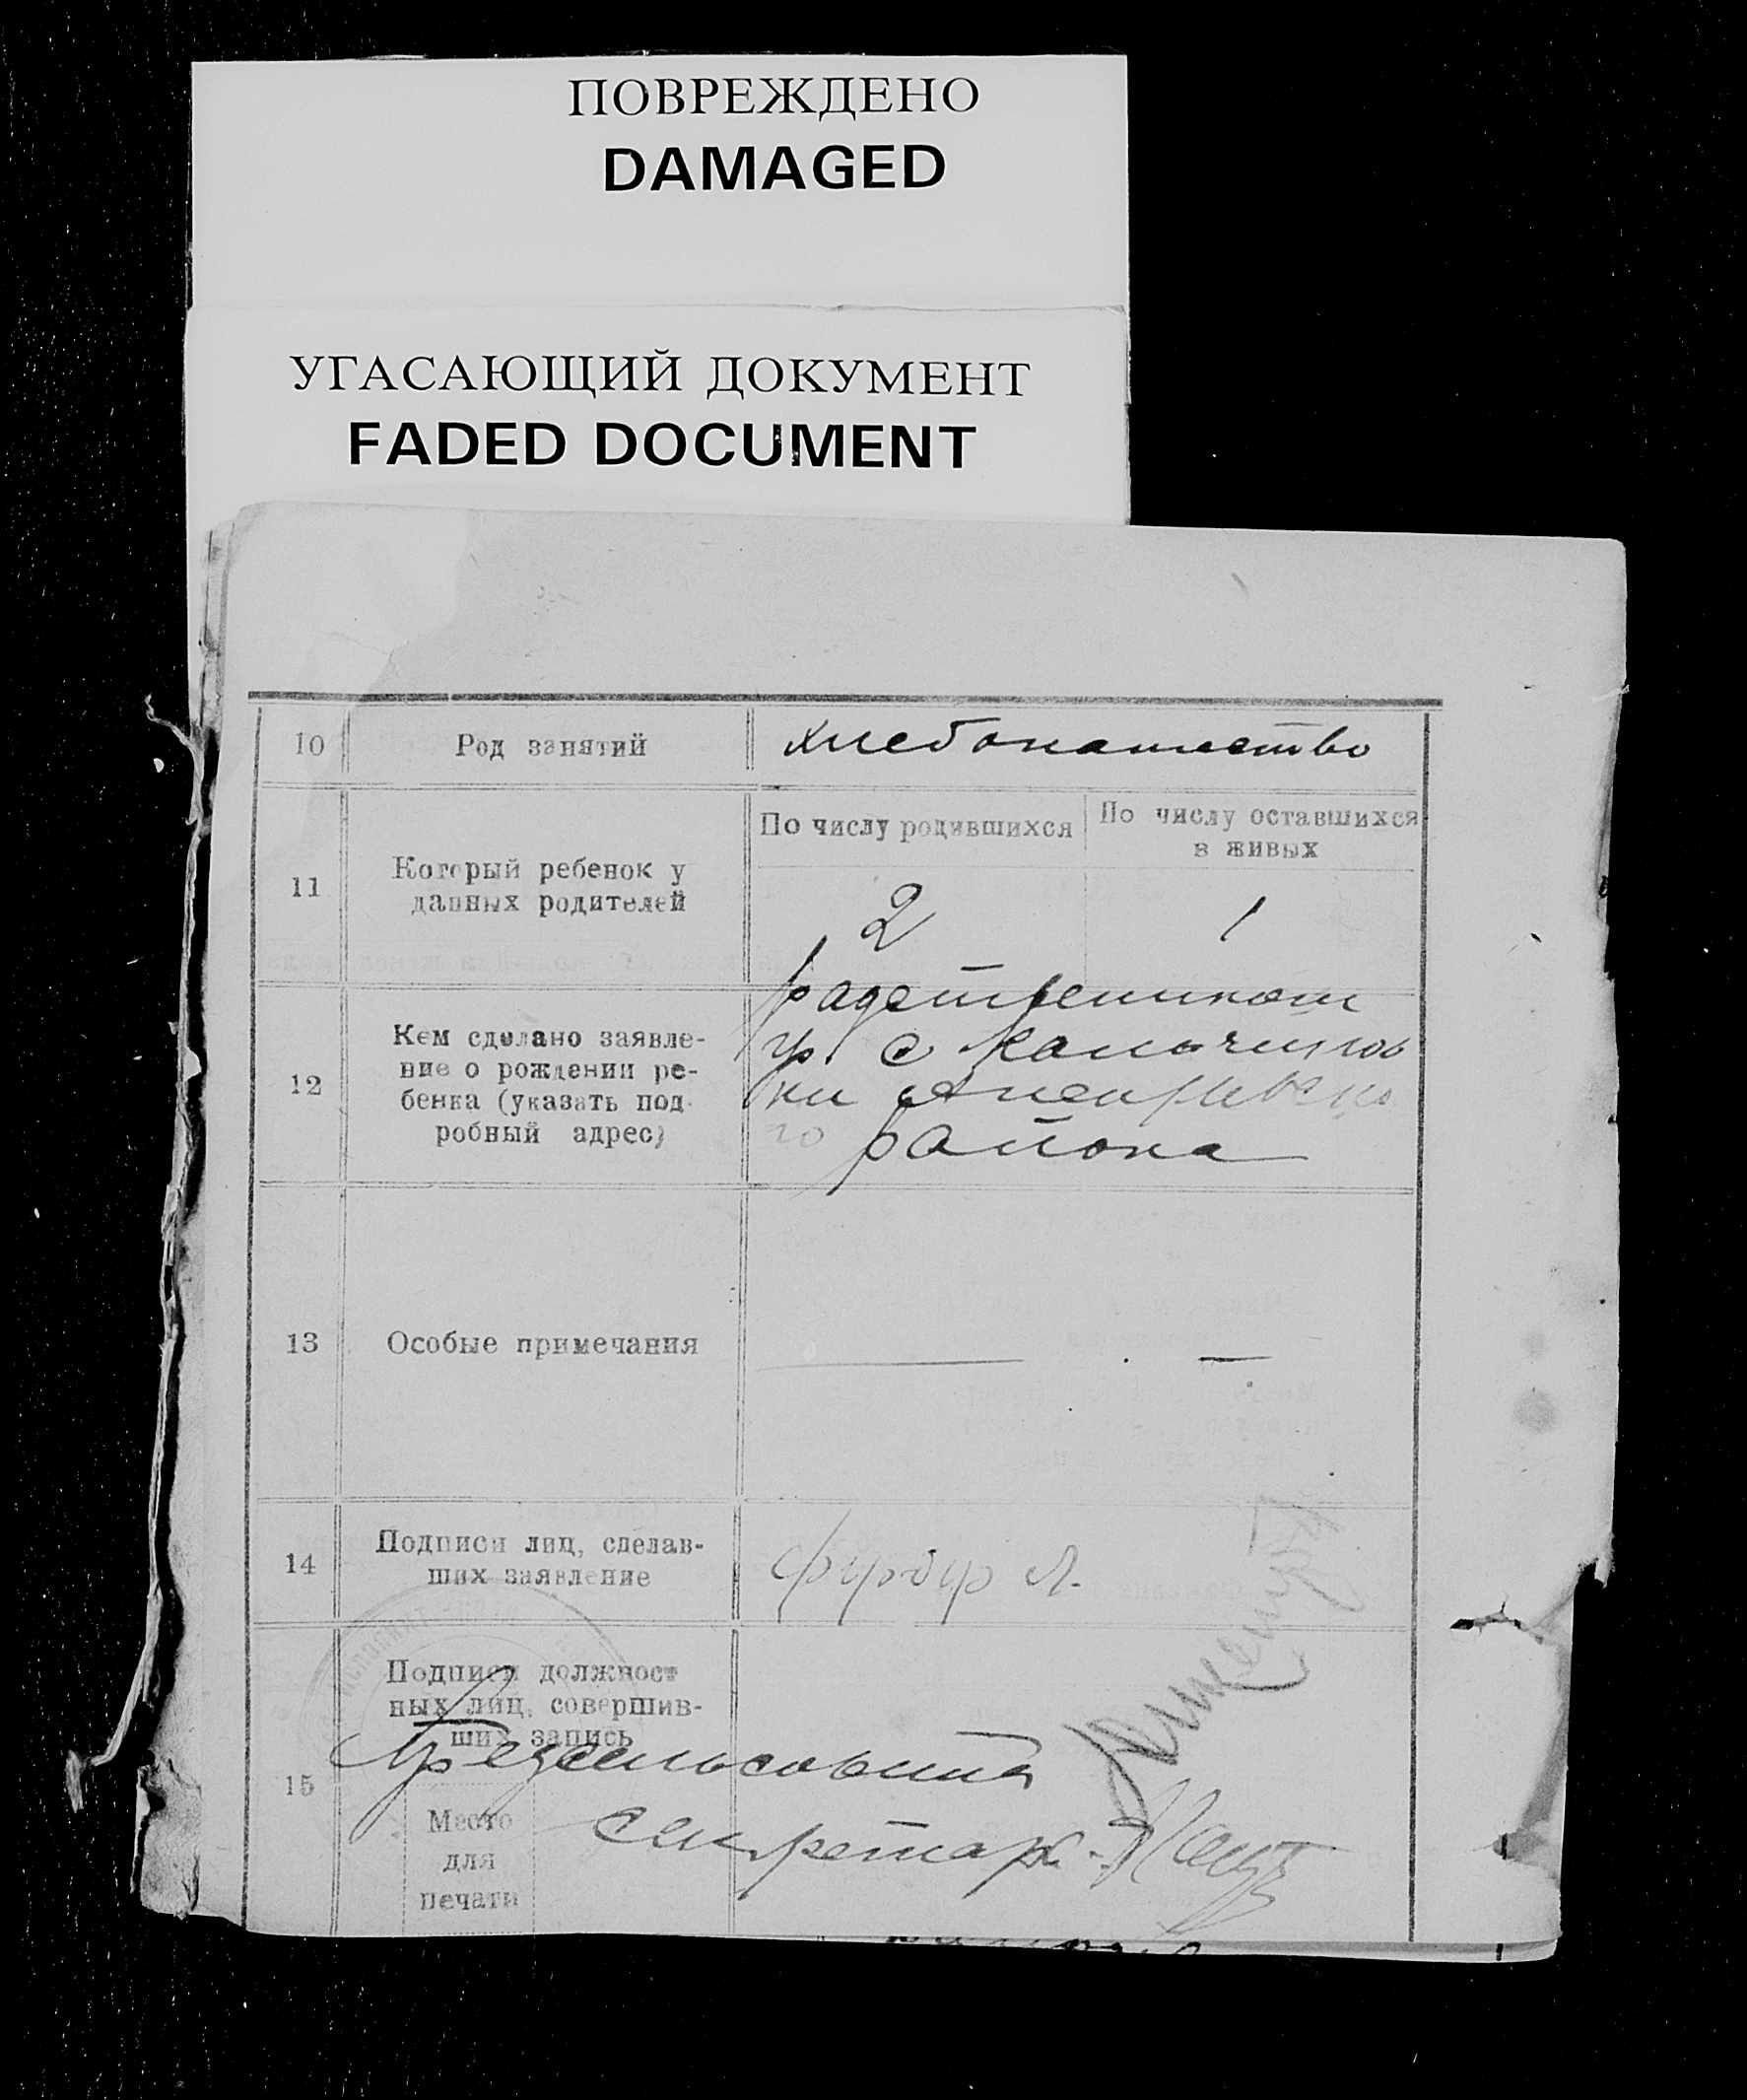 ПОВРЕЖДЕНО
DAMAGED
УГАСАЮЩИЙ ДОКУМЕНТ
FADED DOCUMENT
10 Род занятий хлебопашество
11 Который ребенок у
данных родителей
По числу родившихся
По числу оставшихся
в живых
2 1
12 Кем сделано заявле-
ние о рождении ре-
бенка (указать под-
робный адрес)
гр. с
ки
го района
13 Особые примечания
14 Подписи лиц, сделав-
ших заявление
15 Подписи должност
ных лиц, совершив-
ших запись
Предсельсовета
Место
для
печати
секретарь